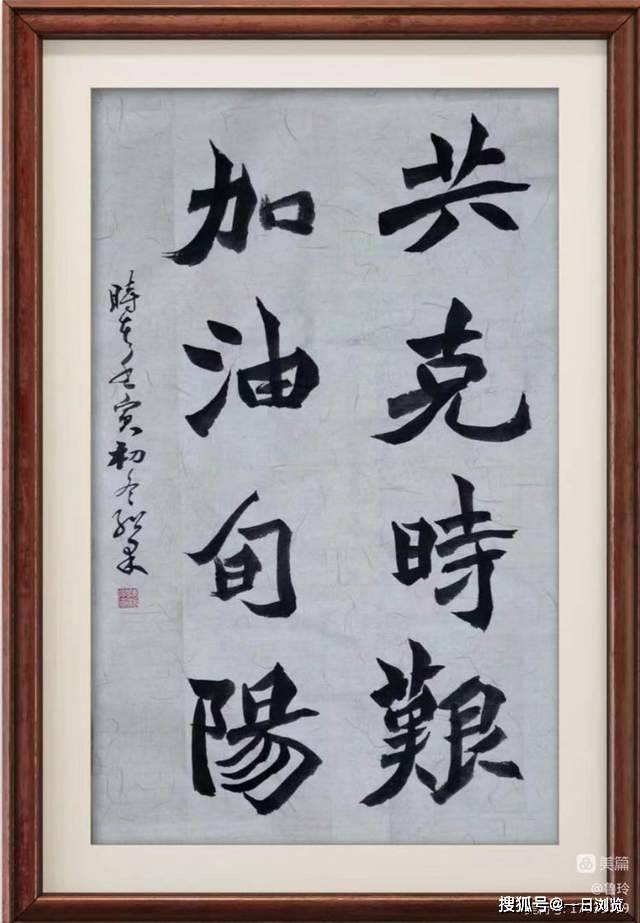 共克時艱
加油旬陽
時在壬寅初冬
美篇
@鲁玲
搜狐号@一日浏览